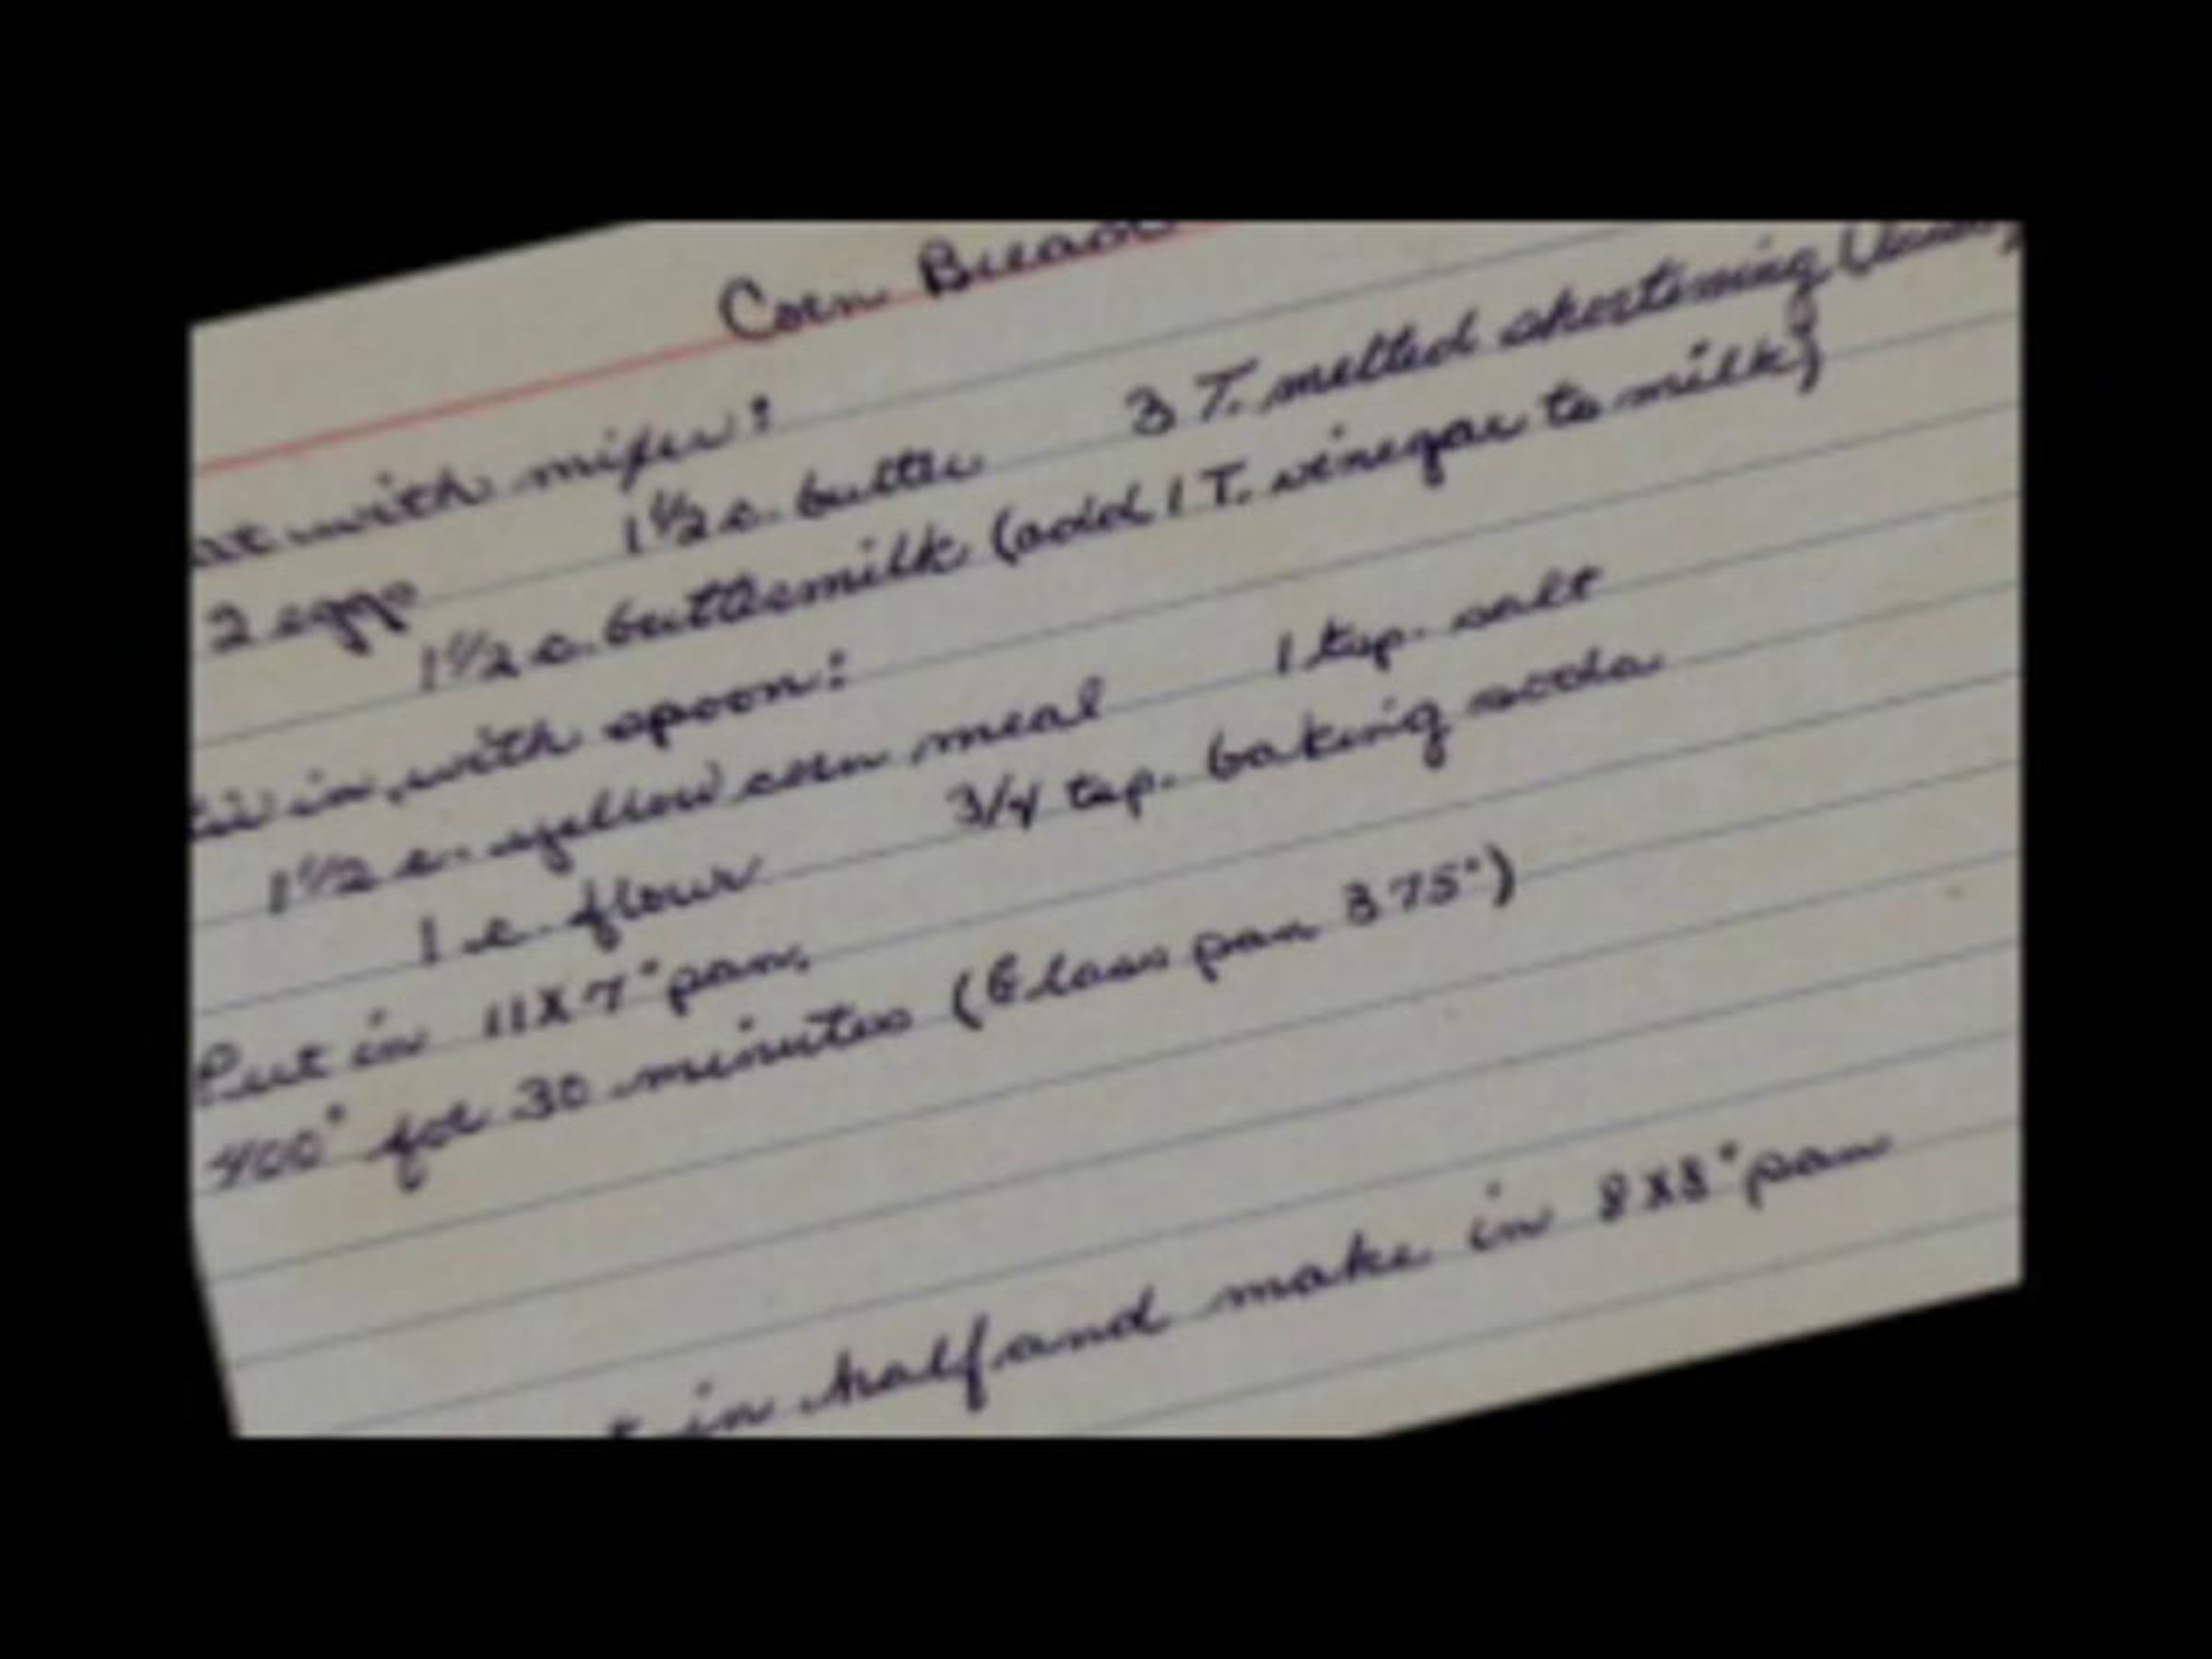 Corn Bread
at with mixer:
2 eggs 1 1/2 c. butter 3 T. melted shortening
1 1/2 c. buttermilk (add 1 T. vinegar to milk)
in with spoon:
1 1/2 c. yellow corn meal 1 tsp. salt
1 c. flour 3/4 tsp. baking soda
Put in 11X7" pan.
400° for 30 minutes (Glass pan 375°)
in half and make in 8X8" pan